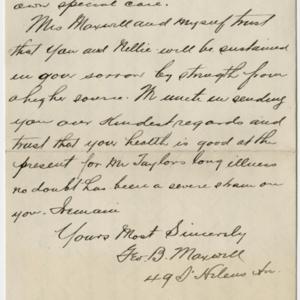 own special care.
Mrs Maxwell and myself trust
that you and Nellie will be sustained
in your sorrow by strength from
a higher source. We unite in sending
you our Kindest regards and
trust that your health is good at the
present for Mr Taylors long illness
no doubt has been a severe strain on
you. I remain
Yours Most Sincerely
Geo. B. Maxwell
49 St Helens Av.